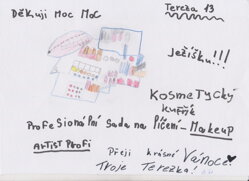 Děkuji moc moc
Tereza 13
Ježíšku!!!
Kosmetycký
kufřík
Profesionální sada na líčení - Makeup
Artist Profi
Přeji krásné Vánoce!
Tvoje Terezka!